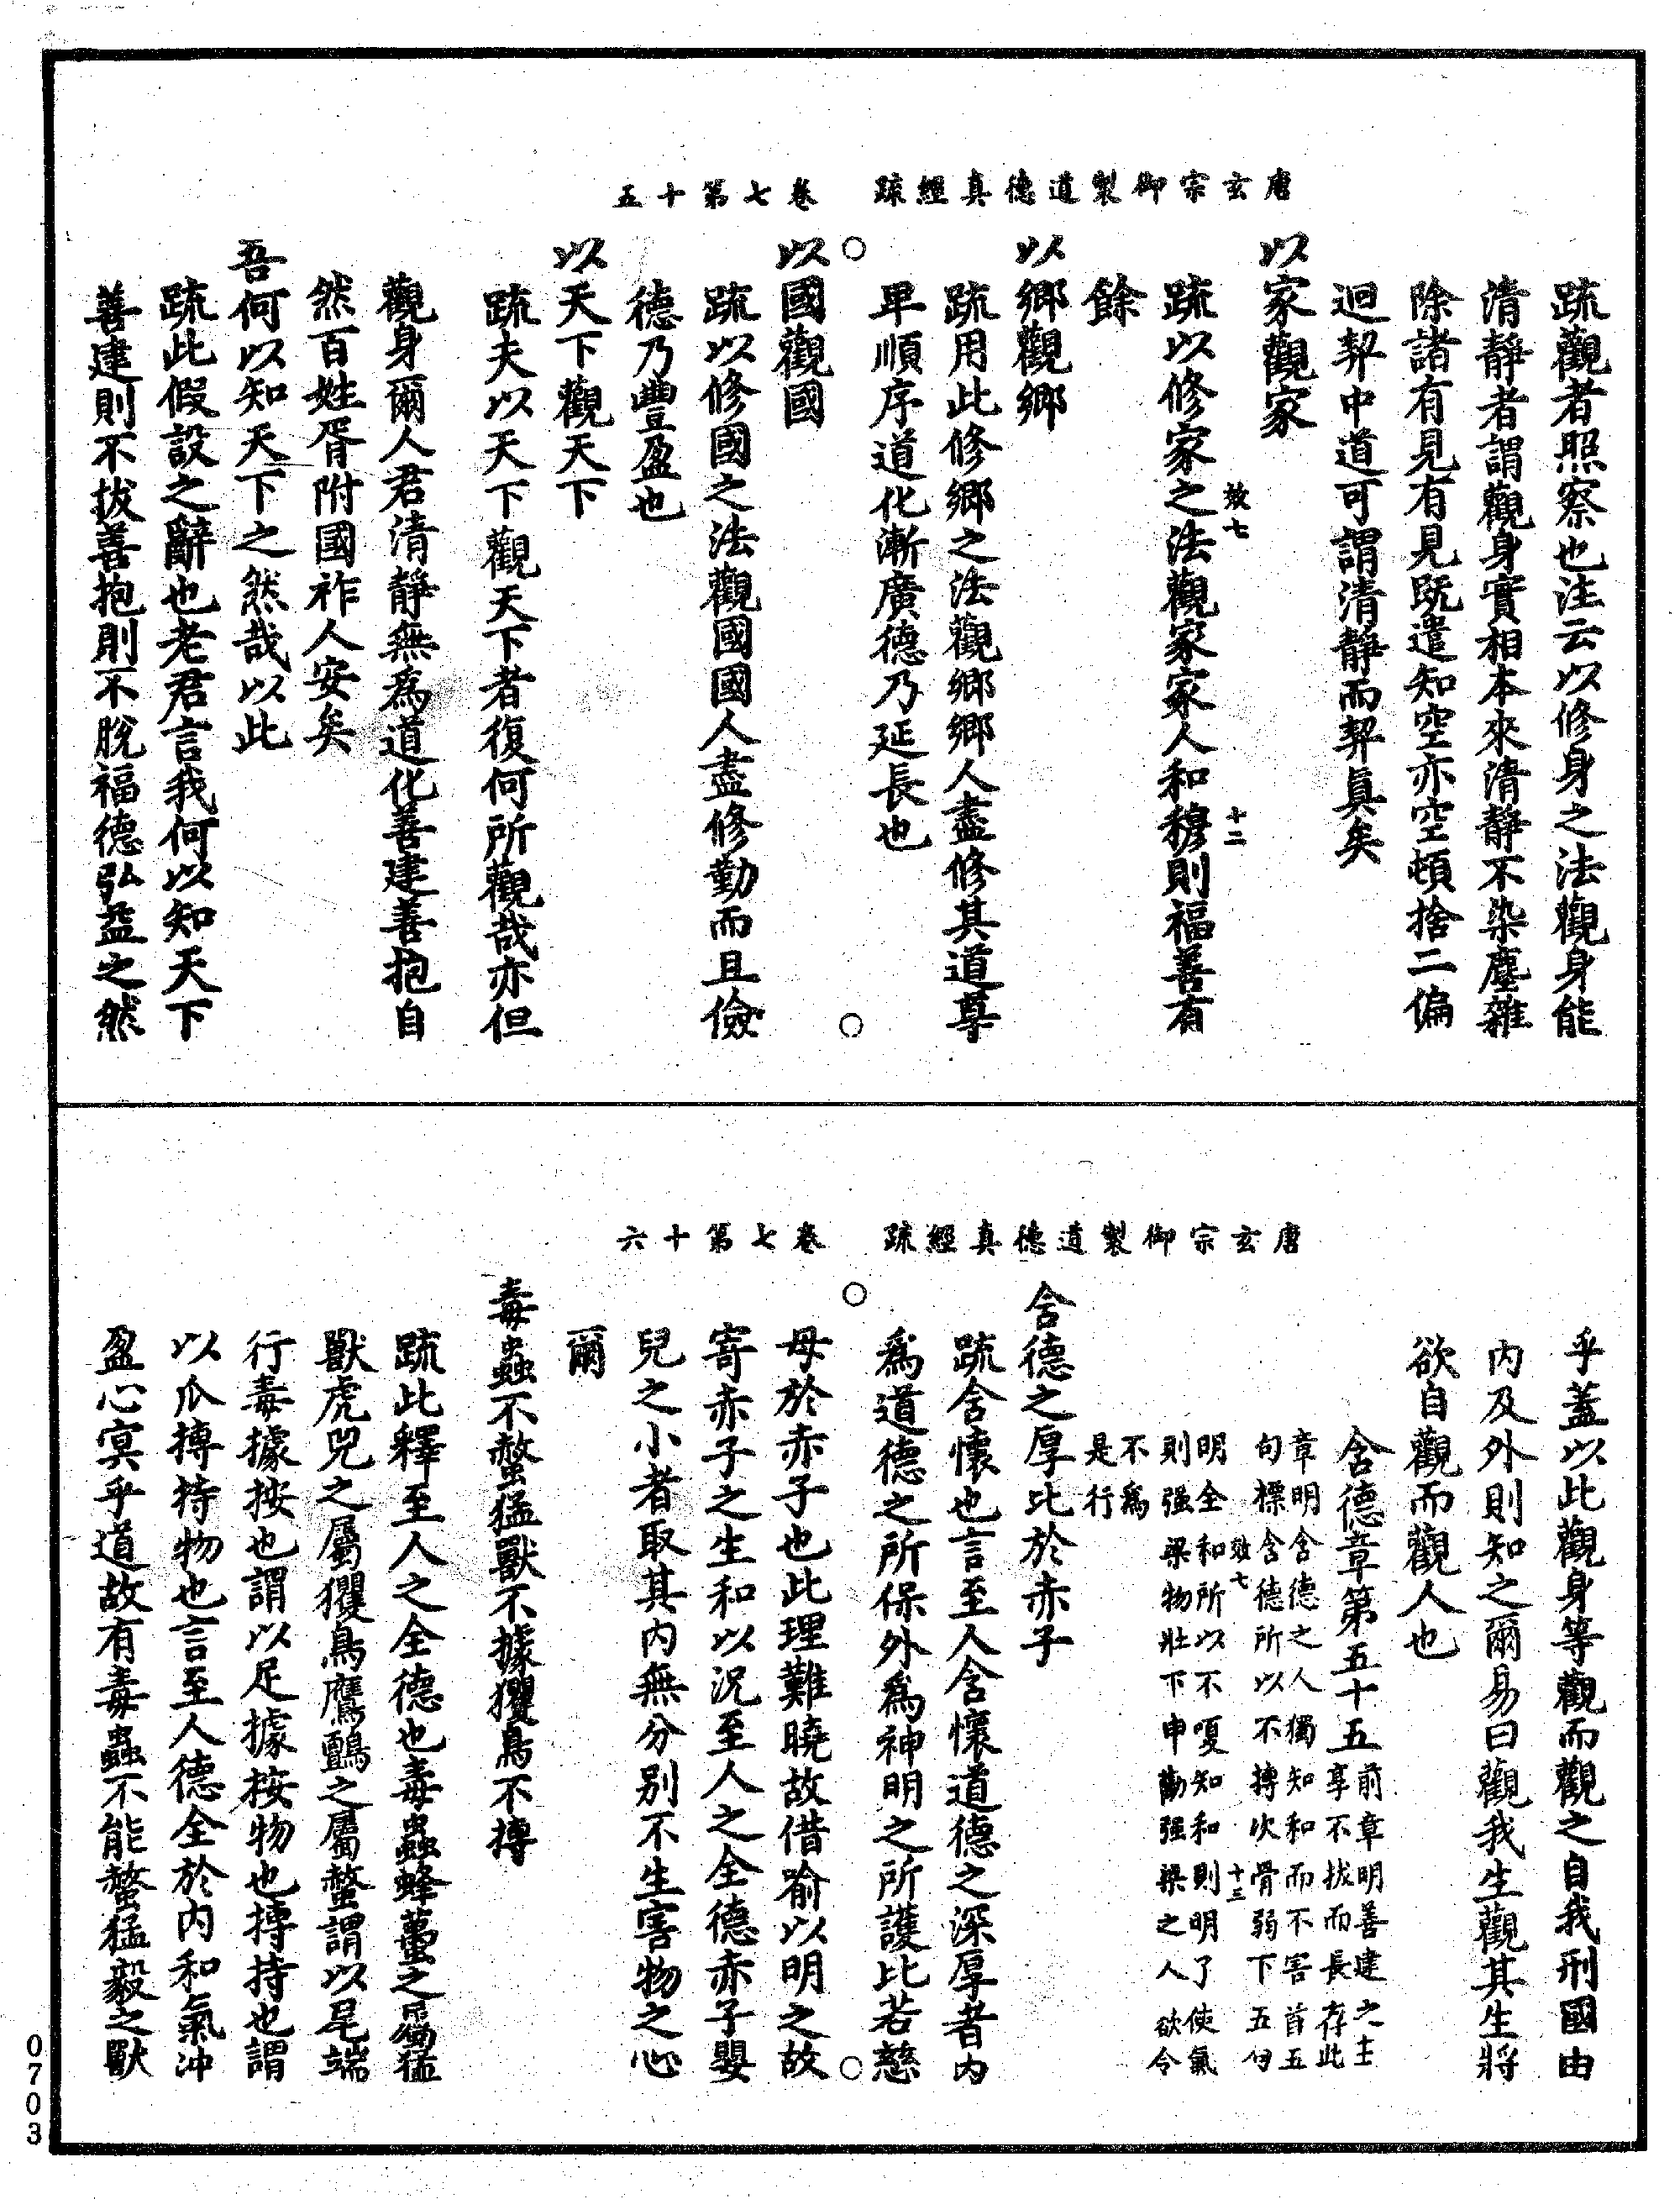 唐玄宗御製道德真經疏　卷七第十五
疏觀者照察也注云以修身之法觀身能
清靜者謂觀身實相本來清靜不染塵雜
除諸有見有見既遣知空亦空頓捨二偏
迥契中道可謂清靜而契真矣
以家觀家
效七　十二
疏以修家之法觀家家人和穆則福善有
餘
以鄉觀鄉
疏用此修鄉之法觀鄉鄉人盡修其道尊
卑順序道化漸廣德乃延長也
以國觀國
疏以修國之法觀國國人盡修勤而且儉
德乃豐盈也
以天下觀天下
疏夫以天下觀天下者復何所觀哉亦但
觀身爾人君清靜無為道化善建善抱自
然百姓胥附國祚人安矣
吾何以知天下之然哉以此
疏此假設之辭也老君言我何以知天下
善建則不拔善抱則不脫福德弘益之然
唐玄宗御製道德真經疏　卷七第十六
乎蓋以此觀身等觀而觀之自我刑國由
內及外則知之爾易曰觀我生觀其生將
欲自觀而觀人也
含德章第五十五
前章明善建之士
享不拔而長存此
章明含德之人獨知和而不害首五
句標含德所以不搏次骨弱下五句
效七　十三
明全和所以不嗄知和則明了使氣
則强梁物壯下申勸强梁之人欲令
不為
是行
含德之厚比於赤子
疏含懷也言至人含懷道德之深厚者內
為道德之所保外為神明之所護比若慈
母於赤子也此理難曉故借喻以明之故
寄赤子之生和以況至人之全德赤子嬰
兒之小者取其內無分別不生害物之心
爾
毒蟲不螫猛獸不據攫鳥不搏
疏此釋至人之全德也毒蟲蜂蠆之屬猛
獸虎兕之屬攫鳥鷹鸇之屬螫謂以尾端
行毒據按也謂以足據按物也搏持也謂
以爪搏持物也言至人德全於內和氣沖
盈心冥乎道故有毒蟲不能螫猛毅之獸
0703